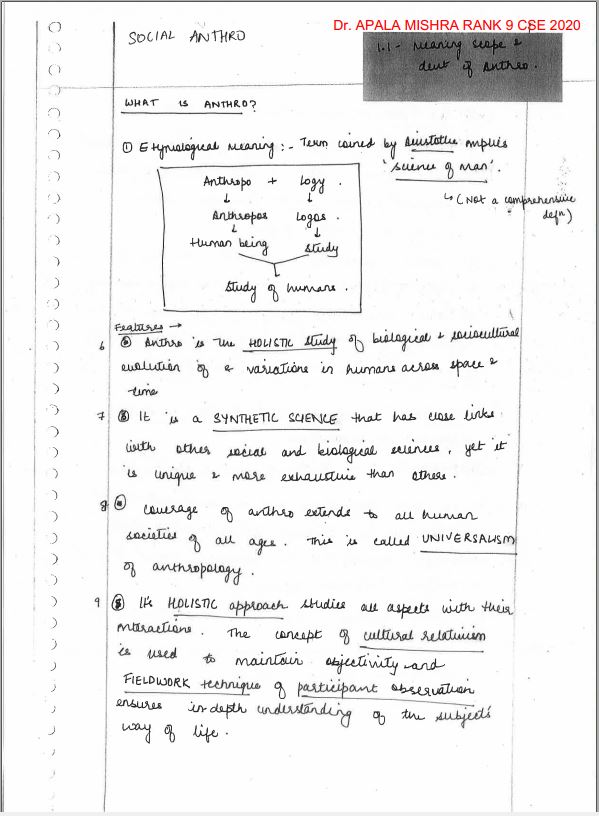 Dr. APALA MISHRA RANK 9 CSE 2020
SOCIAL ANTHRO
1.1 - Meaning scope &
devt of Anthro.
WHAT IS ANTHRO?
① Etymological meaning :- Term coined by Aristotle implies
'science of man'.
↳ (Not a comprehensive
defn)
Anthropo + Logy.
↓ ↓
Anthropos Logos.
↓ ↓
Human being Study
Study of humans.
Features →
6 Anthro is the HOLISTIC study of biological & sociocultural
evolution of & variations in humans across space &
time
7 It is a SYNTHETIC SCIENCE that has close links
with other social and biological sciences, yet it
is unique & more exhaustive than others.
8 Coverage of anthro extends to all human
societies of all ages. This is called UNIVERSALISM
of anthropology.
9 It's HOLISTIC approach studies all aspects with their
interactions. The concept of cultural relativism
is used to maintain objectivity and
FIELDWORK technique of participant observation
ensures in-depth understanding of the subject's
way of life.